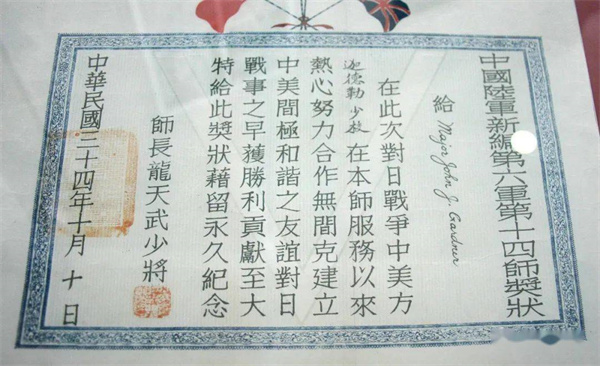 中國陸軍新編第六軍第十四師獎狀
給 Major John J. Gardner
在此次對日戰爭中美方
迦德勒少校在本師服務以來
熱心努力合作無間克建立
中美間極和諧之友誼對日
戰事之早獲勝利貢獻至大
特給此獎狀藉留永久紀念
師長龍天武少將
中華民國三十四年十月十日